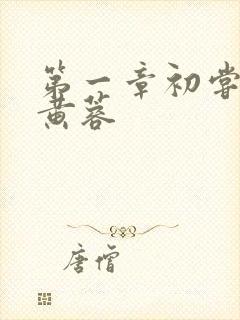 第一章初尝
黄蓉
唐僧